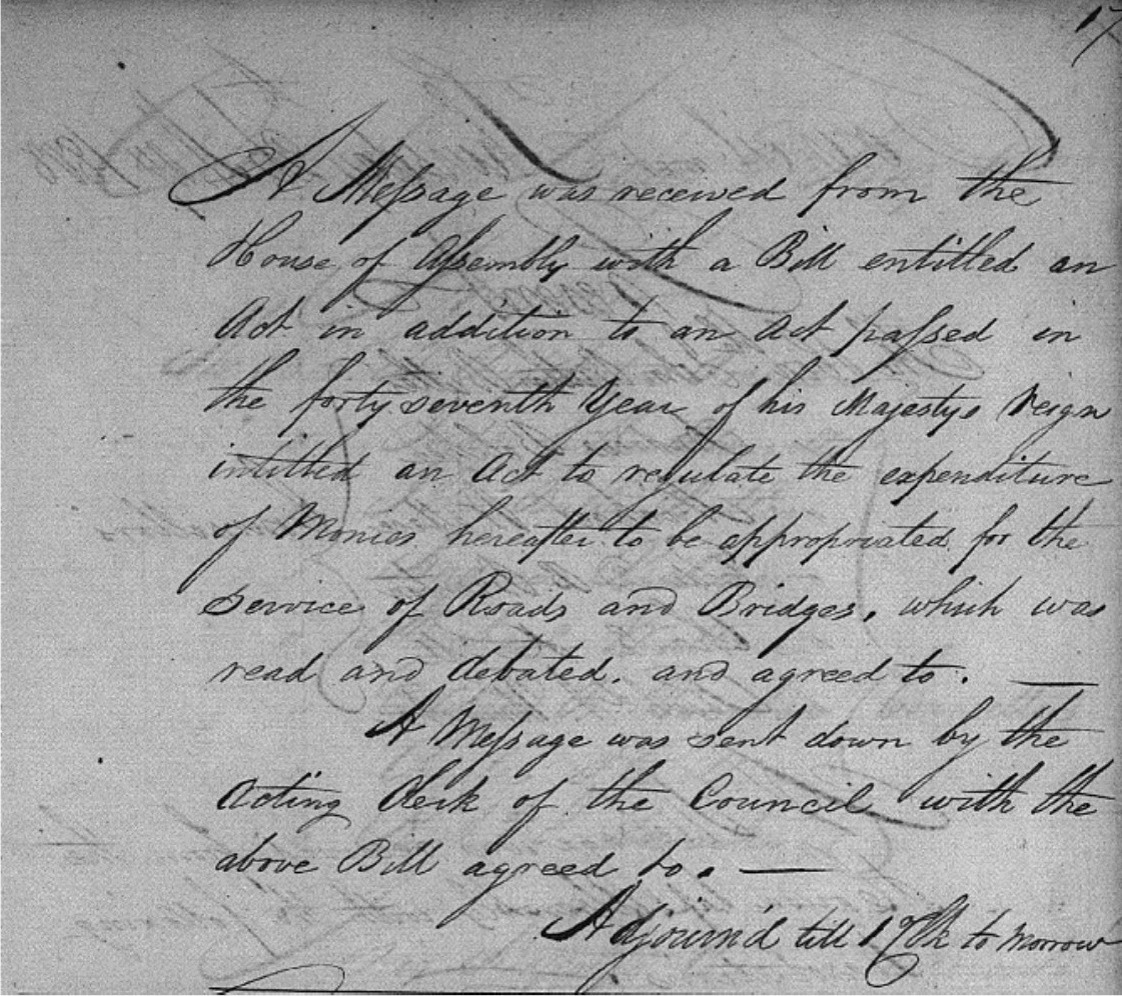 17
A Meſsage was received from the
House of Aſsembly with a Bill entitled an
Act in addition to an Act paſsed in
the forty seventh Year of his Majestys Reign
intitled an Act to regulate the expenditure
of Monies hereafter to be appropriated for the
service of Roads and Bridges, which was
read and debated. and agreed to. —
A Meſsage was sent down by the
Acting Clerk of the Council with the
above Bill agreed to. —
Adjourn'd till 1 OClk to morrow